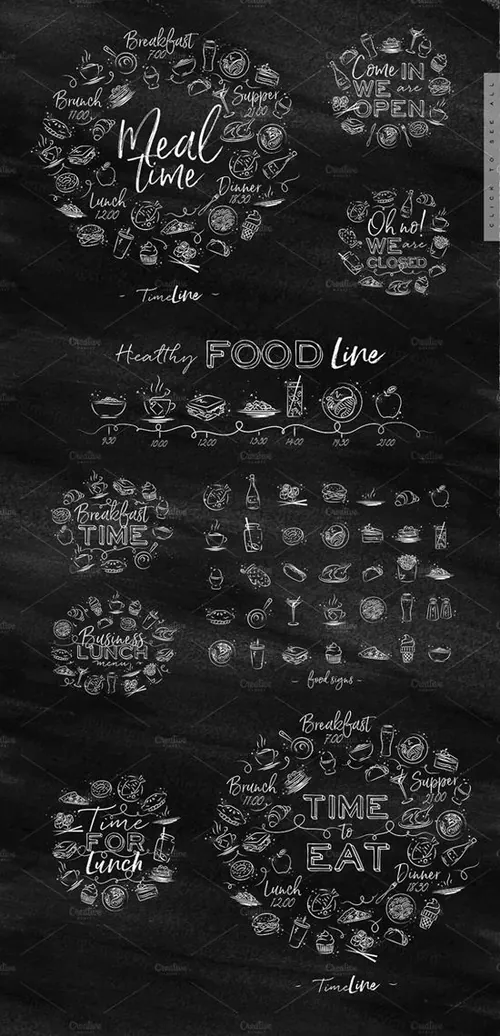 Breakfast
7:00
Brunch
11:00
Supper
21:00
Meal
time
Lunch
12:00
Dinner
18:30
- TimeLine -
Come IN
WE are
OPEN
Oh no!
WE are
CLOSED
CLICK TO SEE ALL
Healthy FOOD Line
9:30 10:00 12:00 13:30 14:00 19:30 21:00
Breakfast
TIME
Business
LUNCH
menu
- food signs -
Time
FOR
Lunch
Breakfast
7:00
Brunch
11:00
Supper
21:00
TIME
to
EAT
Lunch
12:00
Dinner
18:30
- TimeLine -